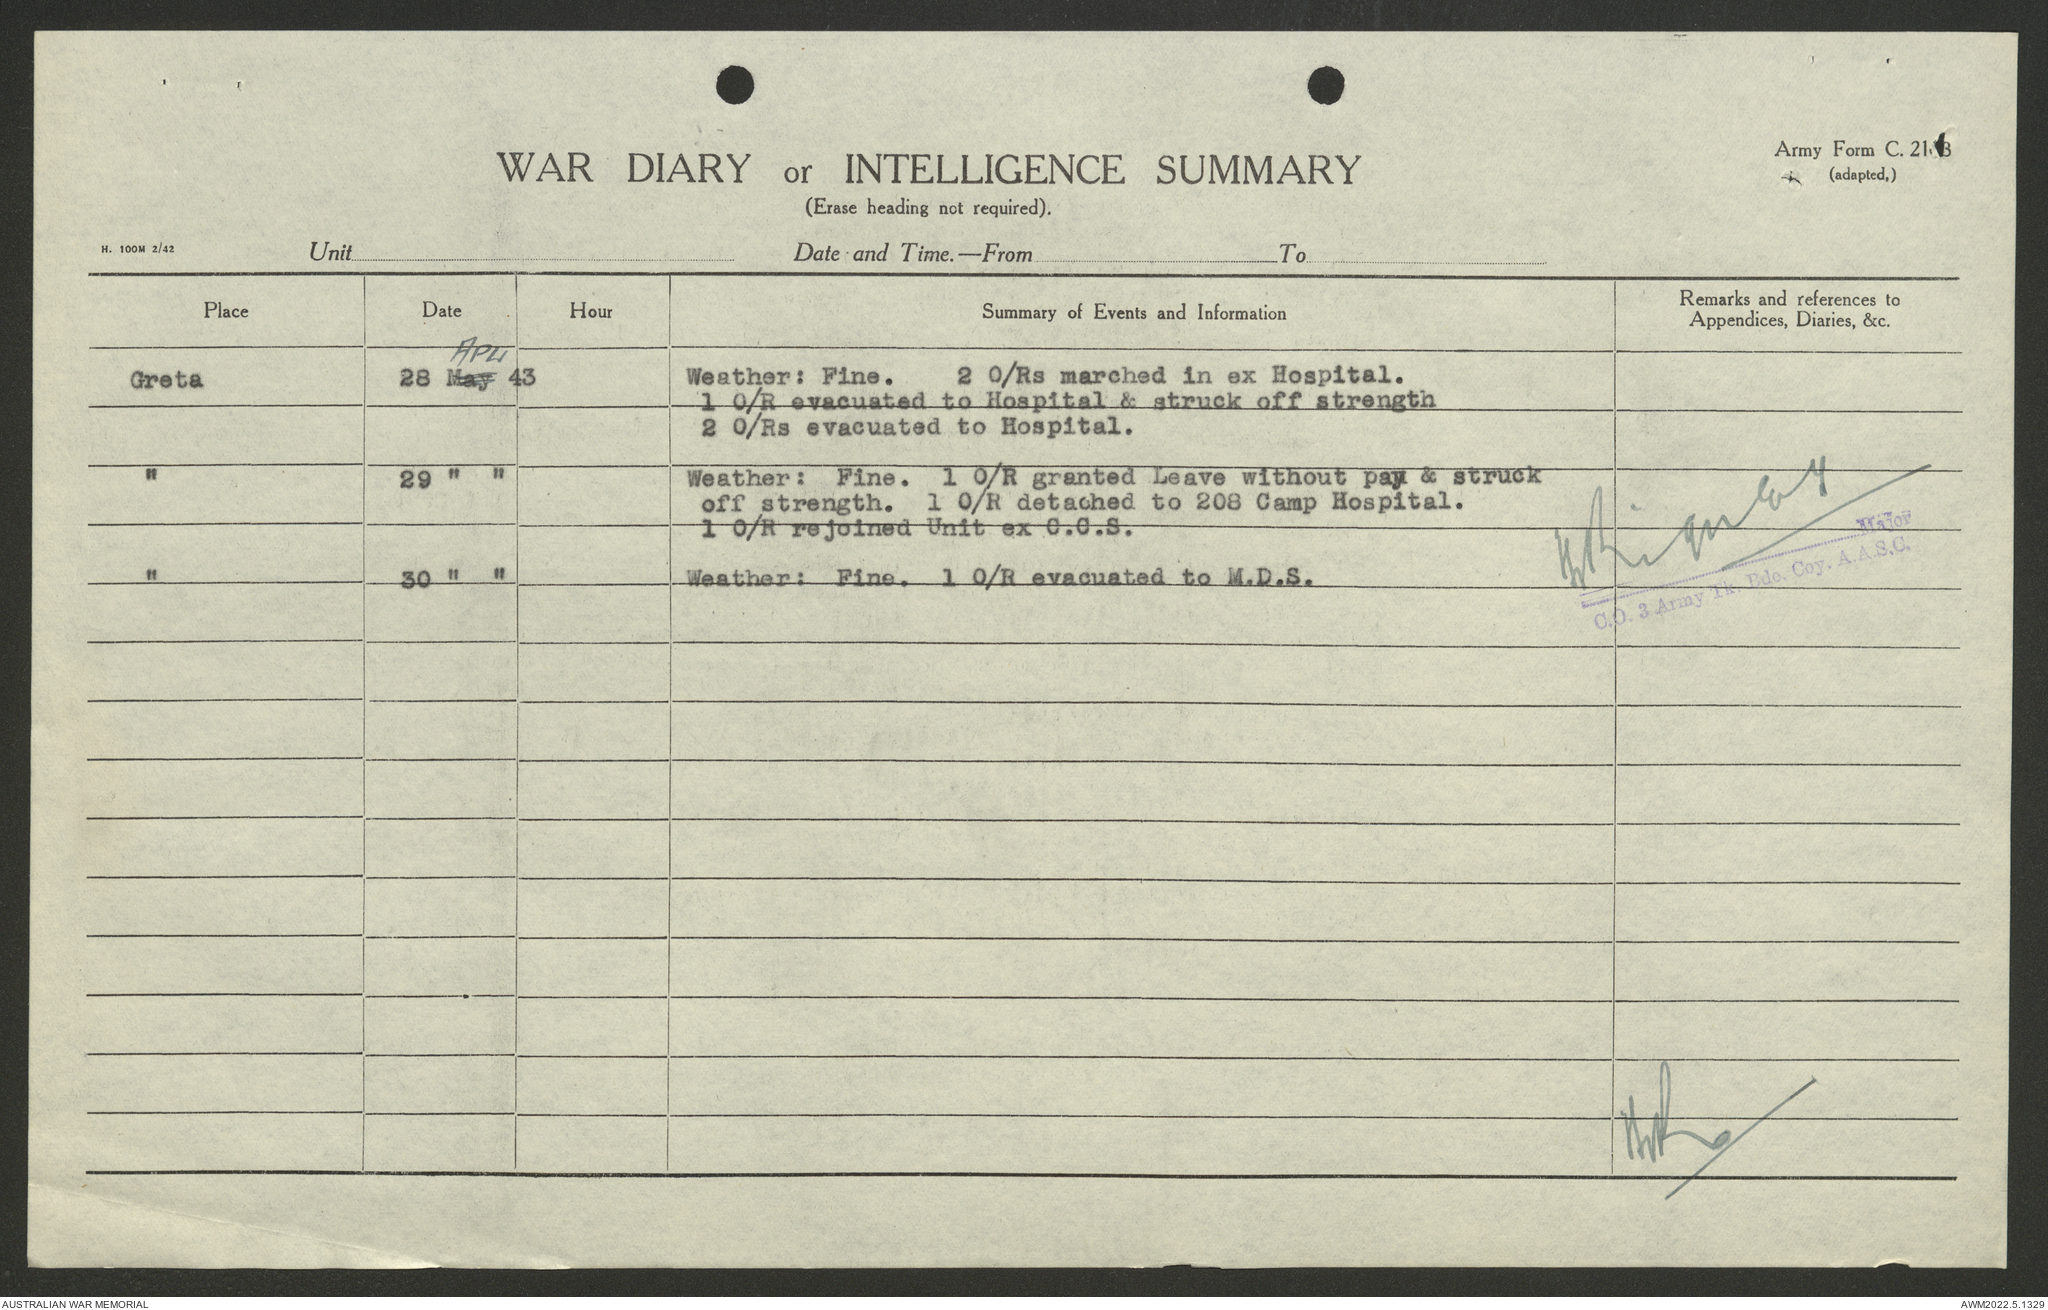 WAR DIARY or INTELLIGENCE SUMMARY
Army Form C. 2118
(adapted,)
(Erase heading not required).
H. 100M 2/42
Unit
Date and Time.—From To
Place Date Hour Summary of Events and Information Remarks and references to
Appendices, Diaries, &c.
APL
Greta 28 May 43 Weather: Fine. 2 O/Rs marched in ex Hospital.
1 O/R evacuated to Hospital & struck off strength
2 O/Rs evacuated to Hospital.
" 29 " " Weather: Fine. 1 O/R granted Leave without pay & struck
off strength. 1 O/R detached to 208 Camp Hospital.
1 O/R rejoined Unit ex C.C.S.
Major
" 30 " " Weather: Fine. 1 O/R evacuated to M.D.S.
C.O. 3 Army Tk. Bde. Coy. A.A.S.C.
AUSTRALIAN WAR MEMORIAL
AWM2022.5.1329